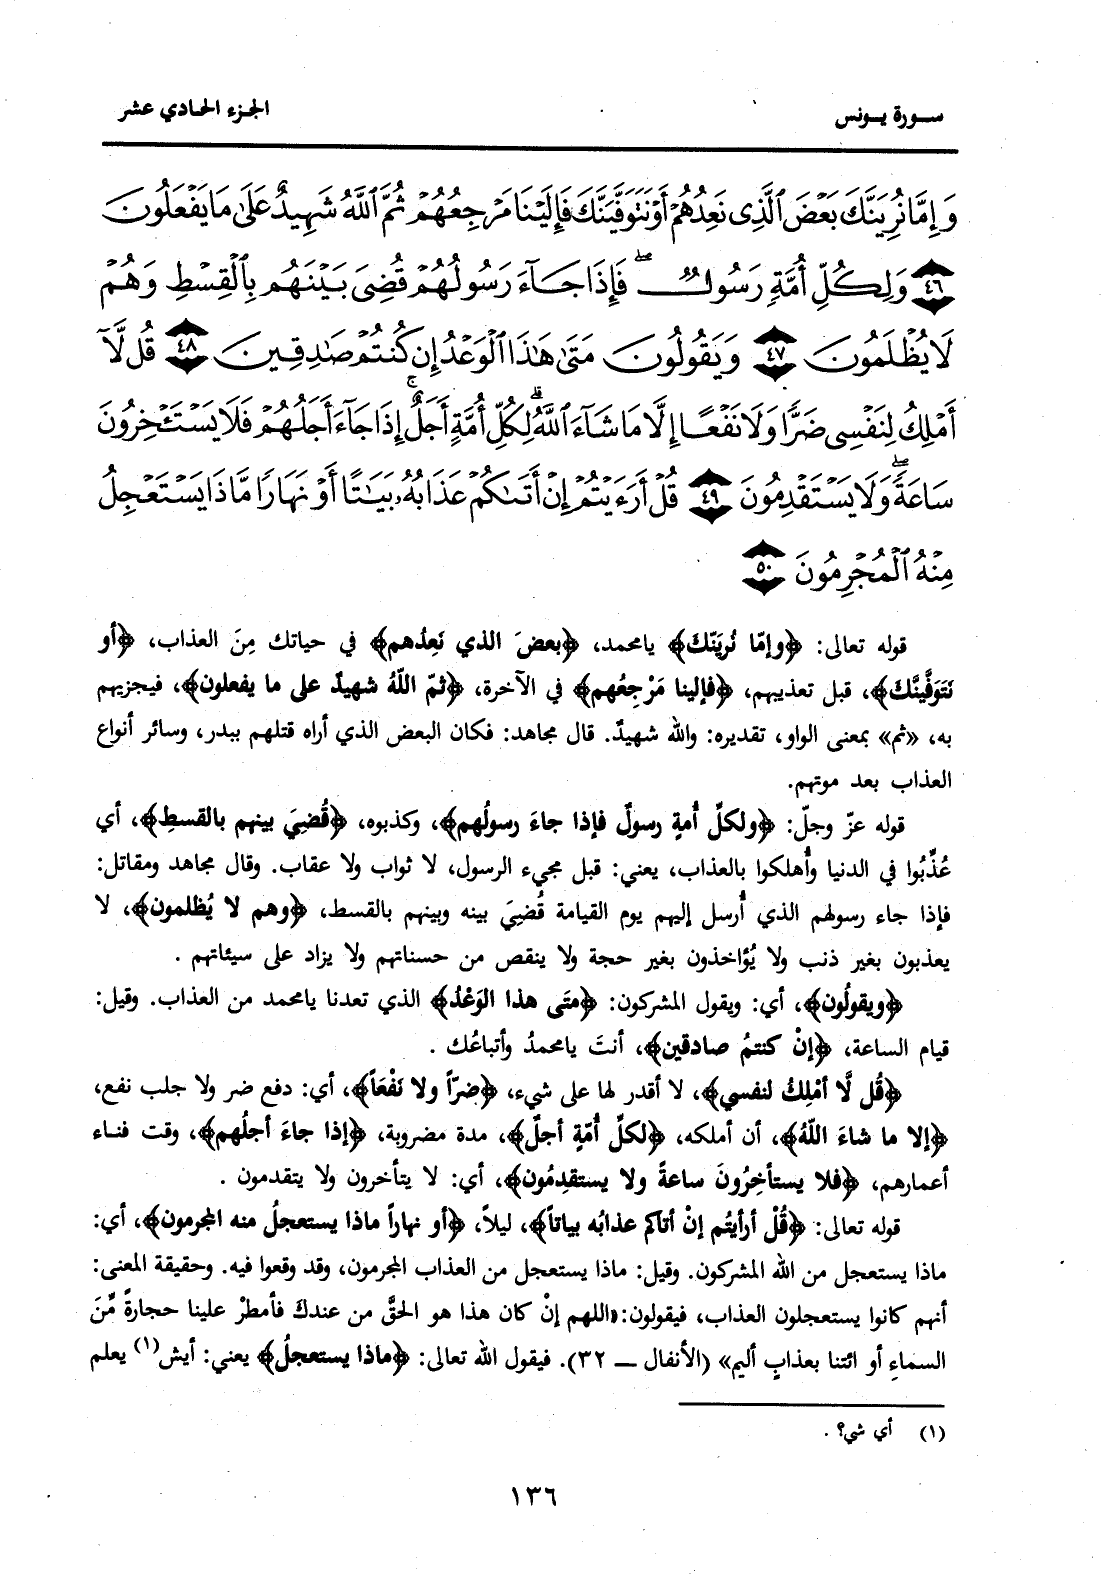 سورة يونس
الجزء الحادي عشر
وَإِمَّا نُرِيَنَّكَ بَعْضَ ٱلَّذِى نَعِدُهُمْ أَوْ نَتَوَفَّيَنَّكَ فَإِلَيْنَا مَرْجِعُهُمْ ثُمَّ ٱللَّهُ شَهِيدٌ عَلَىٰ مَا يَفْعَلُونَ
﴿٤٦﴾ وَلِكُلِّ أُمَّةٍ رَسُولٌ ۖ فَإِذَا جَآءَ رَسُولُهُمْ قُضِىَ بَيْنَهُم بِٱلْقِسْطِ وَهُمْ
لَا يُظْلَمُونَ ﴿٤٧﴾ وَيَقُولُونَ مَتَىٰ هَٰذَا ٱلْوَعْدُ إِن كُنتُمْ صَٰدِقِينَ ﴿٤٨﴾ قُل لَّآ
أَمْلِكُ لِنَفْسِى ضَرًّا وَلَا نَفْعًا إِلَّا مَا شَآءَ ٱللَّهُ ۗ لِكُلِّ أُمَّةٍ أَجَلٌ ۚ إِذَا جَآءَ أَجَلُهُمْ فَلَا يَسْتَـْٔخِرُونَ
سَاعَةً ۖ وَلَا يَسْتَقْدِمُونَ ﴿٤٩﴾ قُلْ أَرَءَيْتُمْ إِنْ أَتَىٰكُمْ عَذَابُهُۥ بَيَٰتًا أَوْ نَهَارًا مَّاذَا يَسْتَعْجِلُ
مِنْهُ ٱلْمُجْرِمُونَ ﴿٥٠﴾
قوله تعالى: ﴿وإمّا نُرِيَنّكَ﴾ يامحمد، ﴿بعضَ الذي نَعِدُهم﴾ في حياتك مِنَ العذاب، ﴿أو
نَتَوَفَّيَنَّكَ﴾، قبل تعذيبهم، ﴿فإلينا مَرْجِعُهم﴾ في الآخرة، ﴿ثمّ اللّهُ شهيدٌ على ما يفعلون﴾، فيجزيهم
به، «ثم» بمعنى الواو، تقديره: والله شهيدٌ. قال مجاهد: فكان البعض الذي أراه قتلهم ببدر، وسائر أنواع
العذاب بعد موتهم.
قوله عزّ وجلّ: ﴿ولكلِّ أُمةٍ رسولٌ فإذا جاءَ رسولُهم﴾، وكذبوه، ﴿قُضِيَ بينهم بالقسطِ﴾، أي
عُذِّبُوا في الدنيا وأُهلكوا بالعذاب، يعني: قبل مجيء الرسول، لا ثواب ولا عقاب. وقال مجاهد ومقاتل:
فإذا جاء رسولهم الذي أُرسل إليهم يوم القيامة قُضِيَ بينه وبينهم بالقسط، ﴿وهم لا يُظلمون﴾، لا
يعذبون بغير ذنب ولا يُؤاخذون بغير حجة ولا ينقص من حسناتهم ولا يزاد على سيئاتهم .
﴿ويقولُون﴾، أي: ويقول المشركون: ﴿متَى هذا الوَعْدُ﴾ الذي تعدنا يامحمد من العذاب. وقيل:
قيام الساعة، ﴿إنْ كنتمُ صادقين﴾، أنتَ يامحمدُ وأتباعُك .
﴿قُل لَّا أمْلِكُ لنفسي﴾، لا أقدر لها على شيء، ﴿ضرّاً ولا نَفْعَاً﴾، أي: دفع ضر ولا جلب نفع،
﴿إلا ما شاءَ اللّهُ﴾، أن أملكه، ﴿لكلِّ أُمّةٍ أجلٌ﴾، مدة مضروبة، ﴿إذا جاءَ أجلُهم﴾، وقت فناء
أعمارهم، ﴿فلا يستأخِرُونَ ساعةً ولا يستقدِمُون﴾، أي: لا يتأخرون ولا يتقدمون .
قوله تعالى: ﴿قُلْ أرأيتُم إنْ أتاكم عذابُه بياتاً﴾، ليلاً، ﴿أو نهاراً ماذا يستعجلُ منه المجرمون﴾، أي:
ماذا يستعجل من الله المشركون. وقيل: ماذا يستعجل من العذاب المجرمون، وقد وقعوا فيه. وحقيقة المعنى:
أنهم كانوا يستعجلون العذاب، فيقولون: «اللهم إنْ كان هذا هو الحقَّ من عندكَ فأمطرْ علينا حجارةً مِّنَ
السماءِ أو ائتنا بعذابٍ أليم» (الأنفال ــ ٣٢). فيقول الله تعالى: ﴿ماذا يستعجلُ﴾ يعني: أيش(١) يعلم
(١) أي شيء؟ .
١٣٦